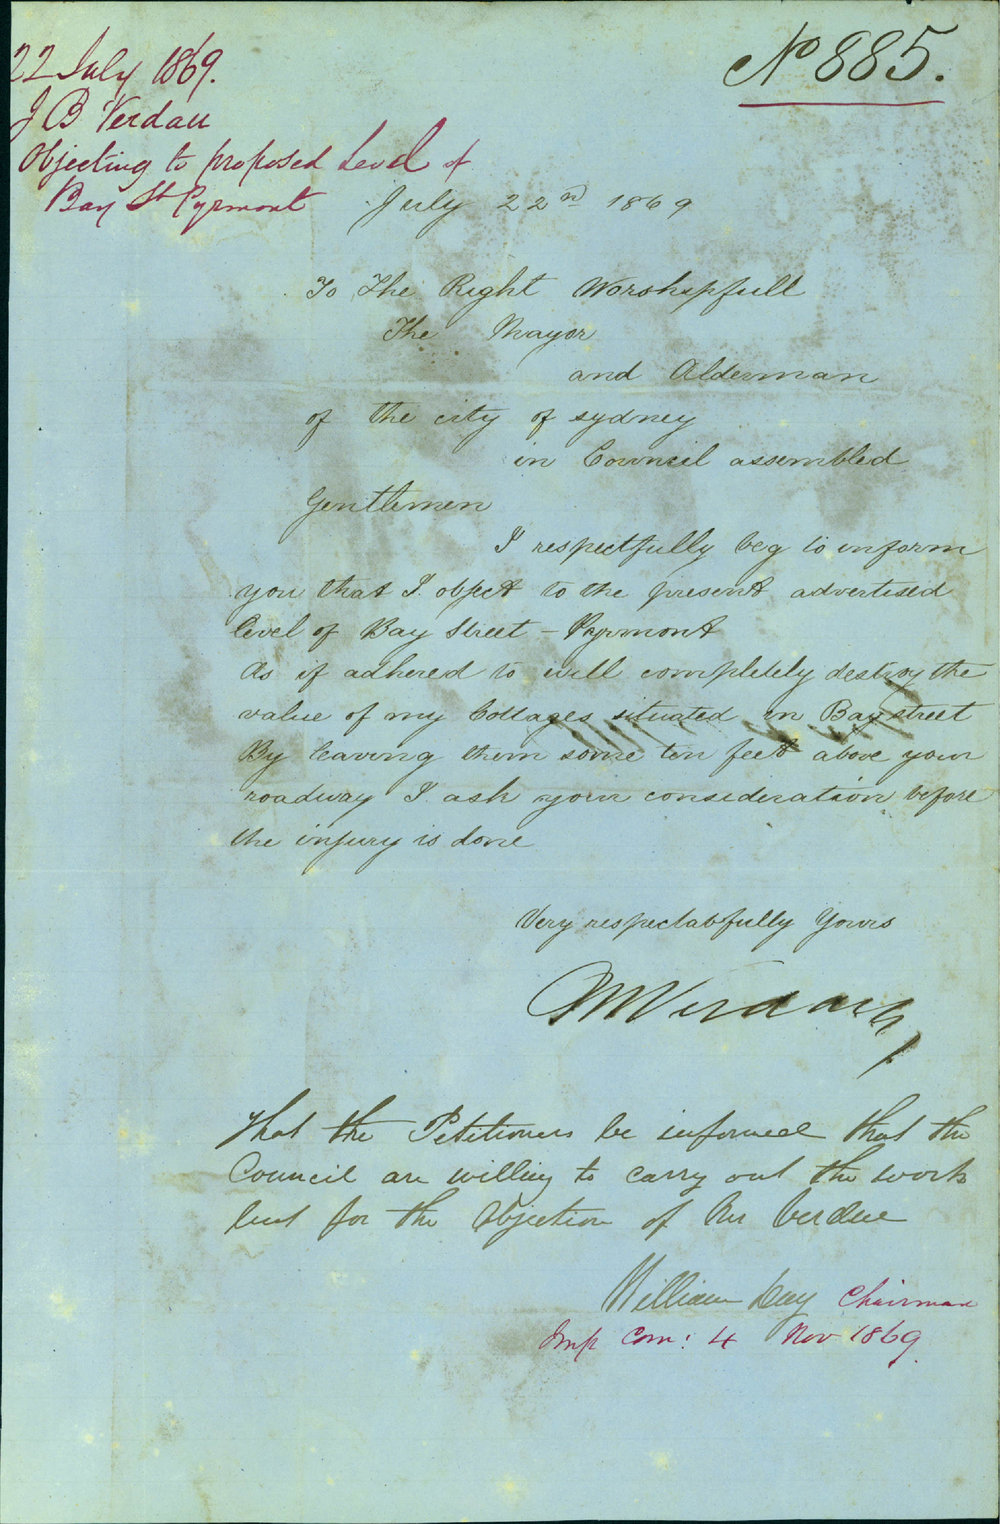 22 July 1869.
J B Verdau
Objecting to proposed Level of
Bay St Pyrmont
No 885.
July 22nd 1869
To The Right Worshipfull
The Mayor
and Alderman
of the city of sydney
in Council assembled
Gentlemen
I respectfully beg to inform
you that I object to the present advertised
level of Bay Street - Pyrmont
As if adhered to will completely destroy the
value of my Cottages situated in Bay street
By leaving them some ten feet above your
roadway I ask your consideration before
the injury is done
Very respectabfully Yours
Verdau
That the Petitioners be informed that the
Council are willing to carry out the work
but for the Objection of Mr Verdue
William Day Chairman
Imp Com: 4 Nov 1869